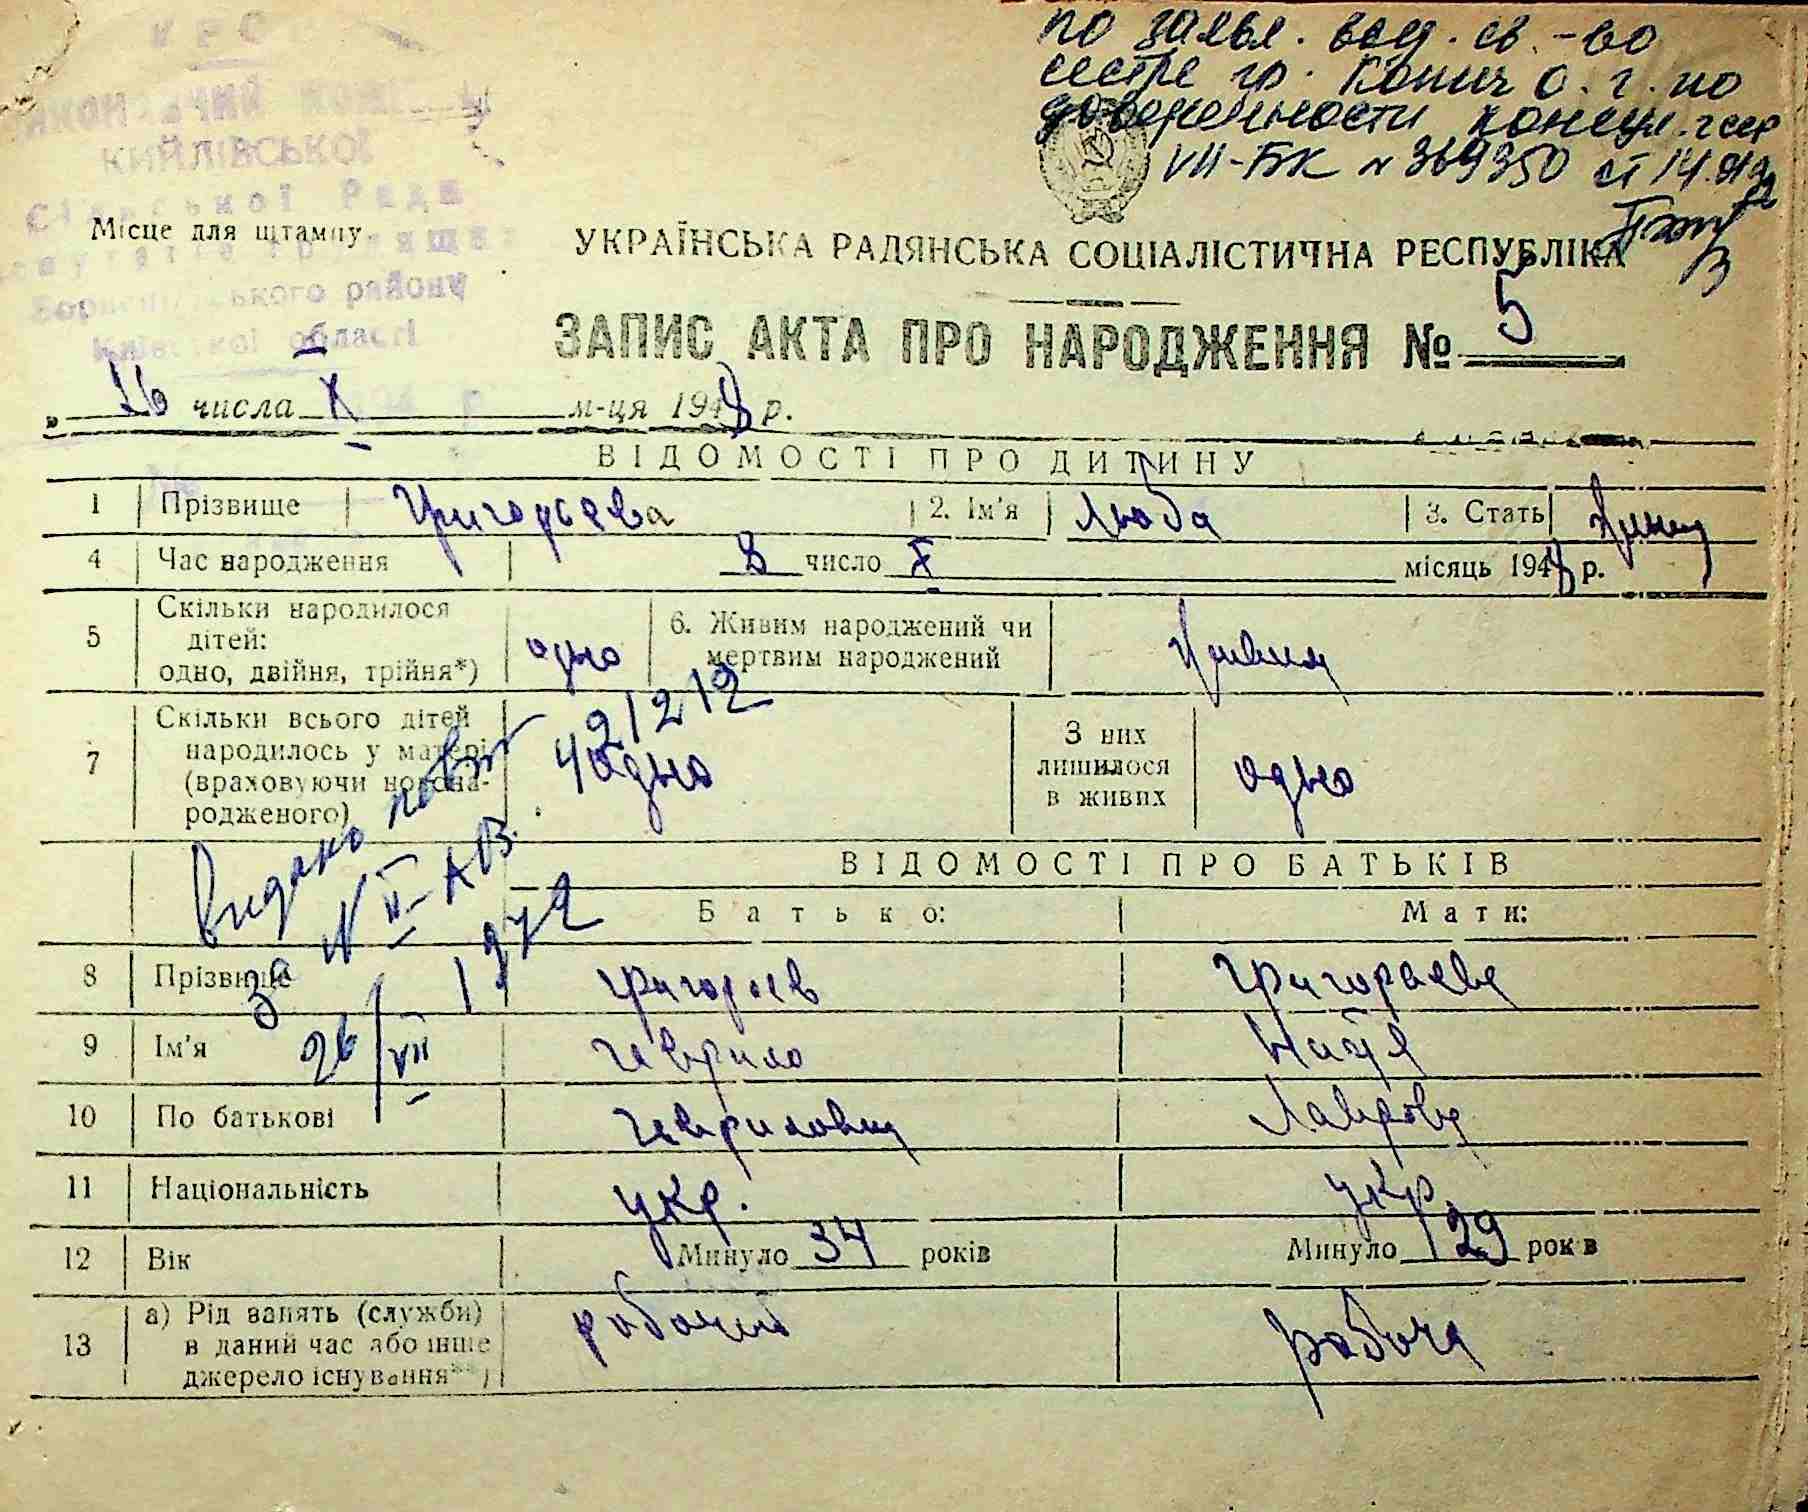 по заявл. выд. св.-во
сестре гр. Конич О. Г. по
доверенности
VII-БК № 369350 от 14.
УРСР
КИЙЛІВСЬКОЇ
Сільської Ради
депутатів трудящих
Бориспільського району
Київської області
Місце для штампу
УКРАЇНСЬКА РАДЯНСЬКА СОЦІАЛІСТИЧНА РЕСПУБЛІКА
ЗАПИС АКТА ПРО НАРОДЖЕННЯ № 5
„ 16 числа X м-ця 1948 р.
ВІДОМОСТІ ПРО ДИТИНУ
1 Прізвище Григорьева 2. Ім'я Люба 3. Стать
4 Час народження 8 число X місяць 1948 р.
5 Скільки народилося дітей: одно, двійня, трійня*) одно 6. Живим народжений чи мертвим народжений живим
7 Скільки всього дітей народилось у матері (враховуючи новонародженого) одно З них лишилося в живих одно
Видано повт
за № II-АВ. 421212
26/VII 1972
ВІДОМОСТІ ПРО БАТЬКІВ
Батько: Мати:
8 Прізвище Григорьев Григорьева
9 Ім'я Гаврило Надя
10 По батькові Гаврилович
11 Національність укр. укр.
12 Вік Минуло 34 років Минуло 29 років
13 а) Рід занять (служби) в даний час або інше джерело існування**) робочий робоча